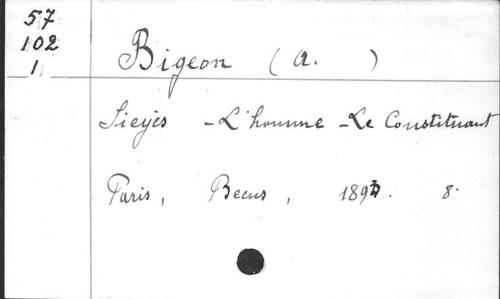 57
102
1
Bigeon (A. )
Sieyès - L'homme - Le Constituant
Paris, Becus, 189 . 8.